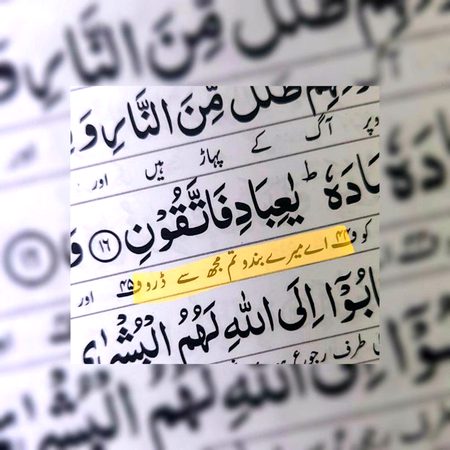 ظُلَلٌ مِّنَ النَّارِ وَ
وپر آگ کے پہاڑ ہیں اور
بَادَهٗ ؕ يٰعِبَادِ فَاتَّقُوْنِ ۝۱۶ وَ
کو اے میرے بندو تم مجھ سے ڈرو و۴۵ اور
ابُوْۤا اِلَى اللّٰهِ لَهُمُ الْبُشْرٰى
طرف رجوع